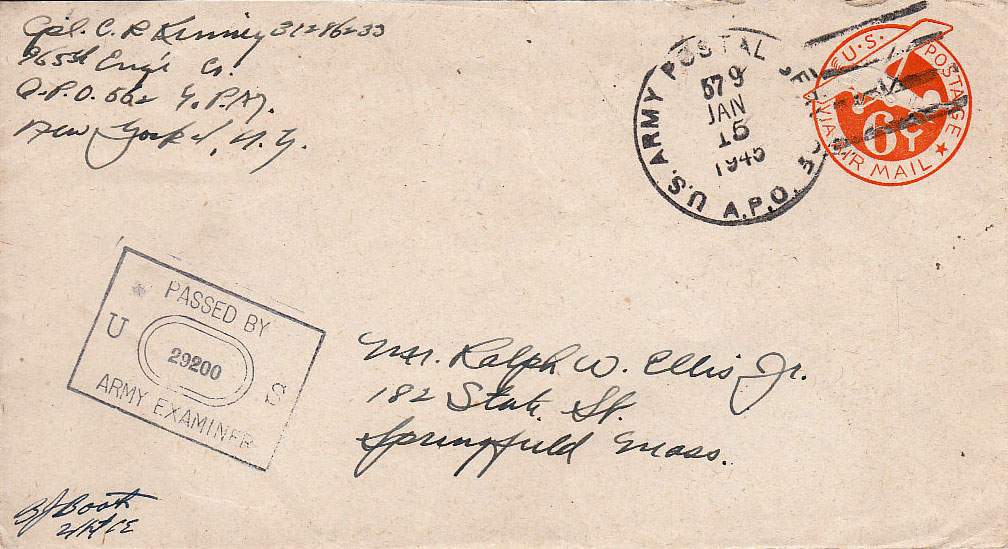 Cpl. C. R Kenney 31286233
965th Eng'r Co.
A.P.O. 562 % P.M.
New York, N.Y.
U.S. ARMY POSTAL A.P.O.
9
JAN
15
1945
U.S. POSTAGE
6¢
VIA AIR MAIL
PASSED BY
U 29200 S
ARMY EXAMINER
Mr. Ralph W. Ellis Jr.
182 State St.
Springfield Mass.
Booth